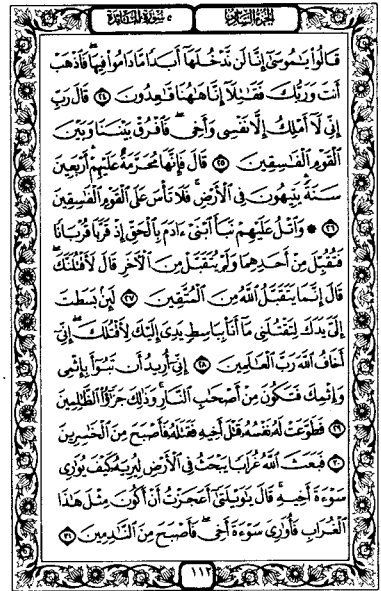 الجزء السادس
٥ سورة المائدة
قَالُوا۟ يَٰمُوسَىٰٓ إِنَّا لَن نَّدْخُلَهَآ أَبَدًۭا مَّا دَامُوا۟ فِيهَا ۖ فَٱذْهَبْ
أَنتَ وَرَبُّكَ فَقَٰتِلَآ إِنَّا هَٰهُنَا قَٰعِدُونَ ٢٤ قَالَ رَبِّ
إِنِّى لَآ أَمْلِكُ إِلَّا نَفْسِى وَأَخِى ۖ فَٱفْرُقْ بَيْنَنَا وَبَيْنَ
ٱلْقَوْمِ ٱلْفَٰسِقِينَ ٢٥ قَالَ فَإِنَّهَا مُحَرَّمَةٌ عَلَيْهِمْ ۛ أَرْبَعِينَ
سَنَةًۭ ۛ يَتِيهُونَ فِى ٱلْأَرْضِ ۚ فَلَا تَأْسَ عَلَى ٱلْقَوْمِ ٱلْفَٰسِقِينَ
٢٦ ۞ وَٱتْلُ عَلَيْهِمْ نَبَأَ ٱبْنَىْ ءَادَمَ بِٱلْحَقِّ إِذْ قَرَّبَا قُرْبَانًۭا
فَتُقُبِّلَ مِنْ أَحَدِهِمَا وَلَمْ يُتَقَبَّلْ مِنَ ٱلْءَاخَرِ قَالَ لَأَقْتُلَنَّكَ ۖ
قَالَ إِنَّمَا يَتَقَبَّلُ ٱللَّهُ مِنَ ٱلْمُتَّقِينَ ٢٧ لَئِنۢ بَسَطتَ
إِلَىَّ يَدَكَ لِتَقْتُلَنِى مَآ أَنَا۠ بِبَاسِطٍۢ يَدِىَ إِلَيْكَ لِأَقْتُلَكَ ۖ إِنِّىٓ
أَخَافُ ٱللَّهَ رَبَّ ٱلْعَٰلَمِينَ ٢٨ إِنِّىٓ أُرِيدُ أَن تَبُوٓأَ بِإِثْمِى
وَإِثْمِكَ فَتَكُونَ مِنْ أَصْحَٰبِ ٱلنَّارِ ۚ وَذَٰلِكَ جَزَٰٓؤُا۟ ٱلظَّٰلِمِينَ
٢٩ فَطَوَّعَتْ لَهُۥ نَفْسُهُۥ قَتْلَ أَخِيهِ فَقَتَلَهُۥ فَأَصْبَحَ مِنَ ٱلْخَٰسِرِينَ
٣٠ فَبَعَثَ ٱللَّهُ غُرَابًۭا يَبْحَثُ فِى ٱلْأَرْضِ لِيُرِيَهُۥ كَيْفَ يُوَٰرِى
سَوْءَةَ أَخِيهِ ۚ قَالَ يَٰوَيْلَتَىٰٓ أَعَجَزْتُ أَنْ أَكُونَ مِثْلَ هَٰذَا
ٱلْغُرَابِ فَأُوَٰرِىَ سَوْءَةَ أَخِى ۖ فَأَصْبَحَ مِنَ ٱلنَّٰدِمِينَ ٣١
١١٢